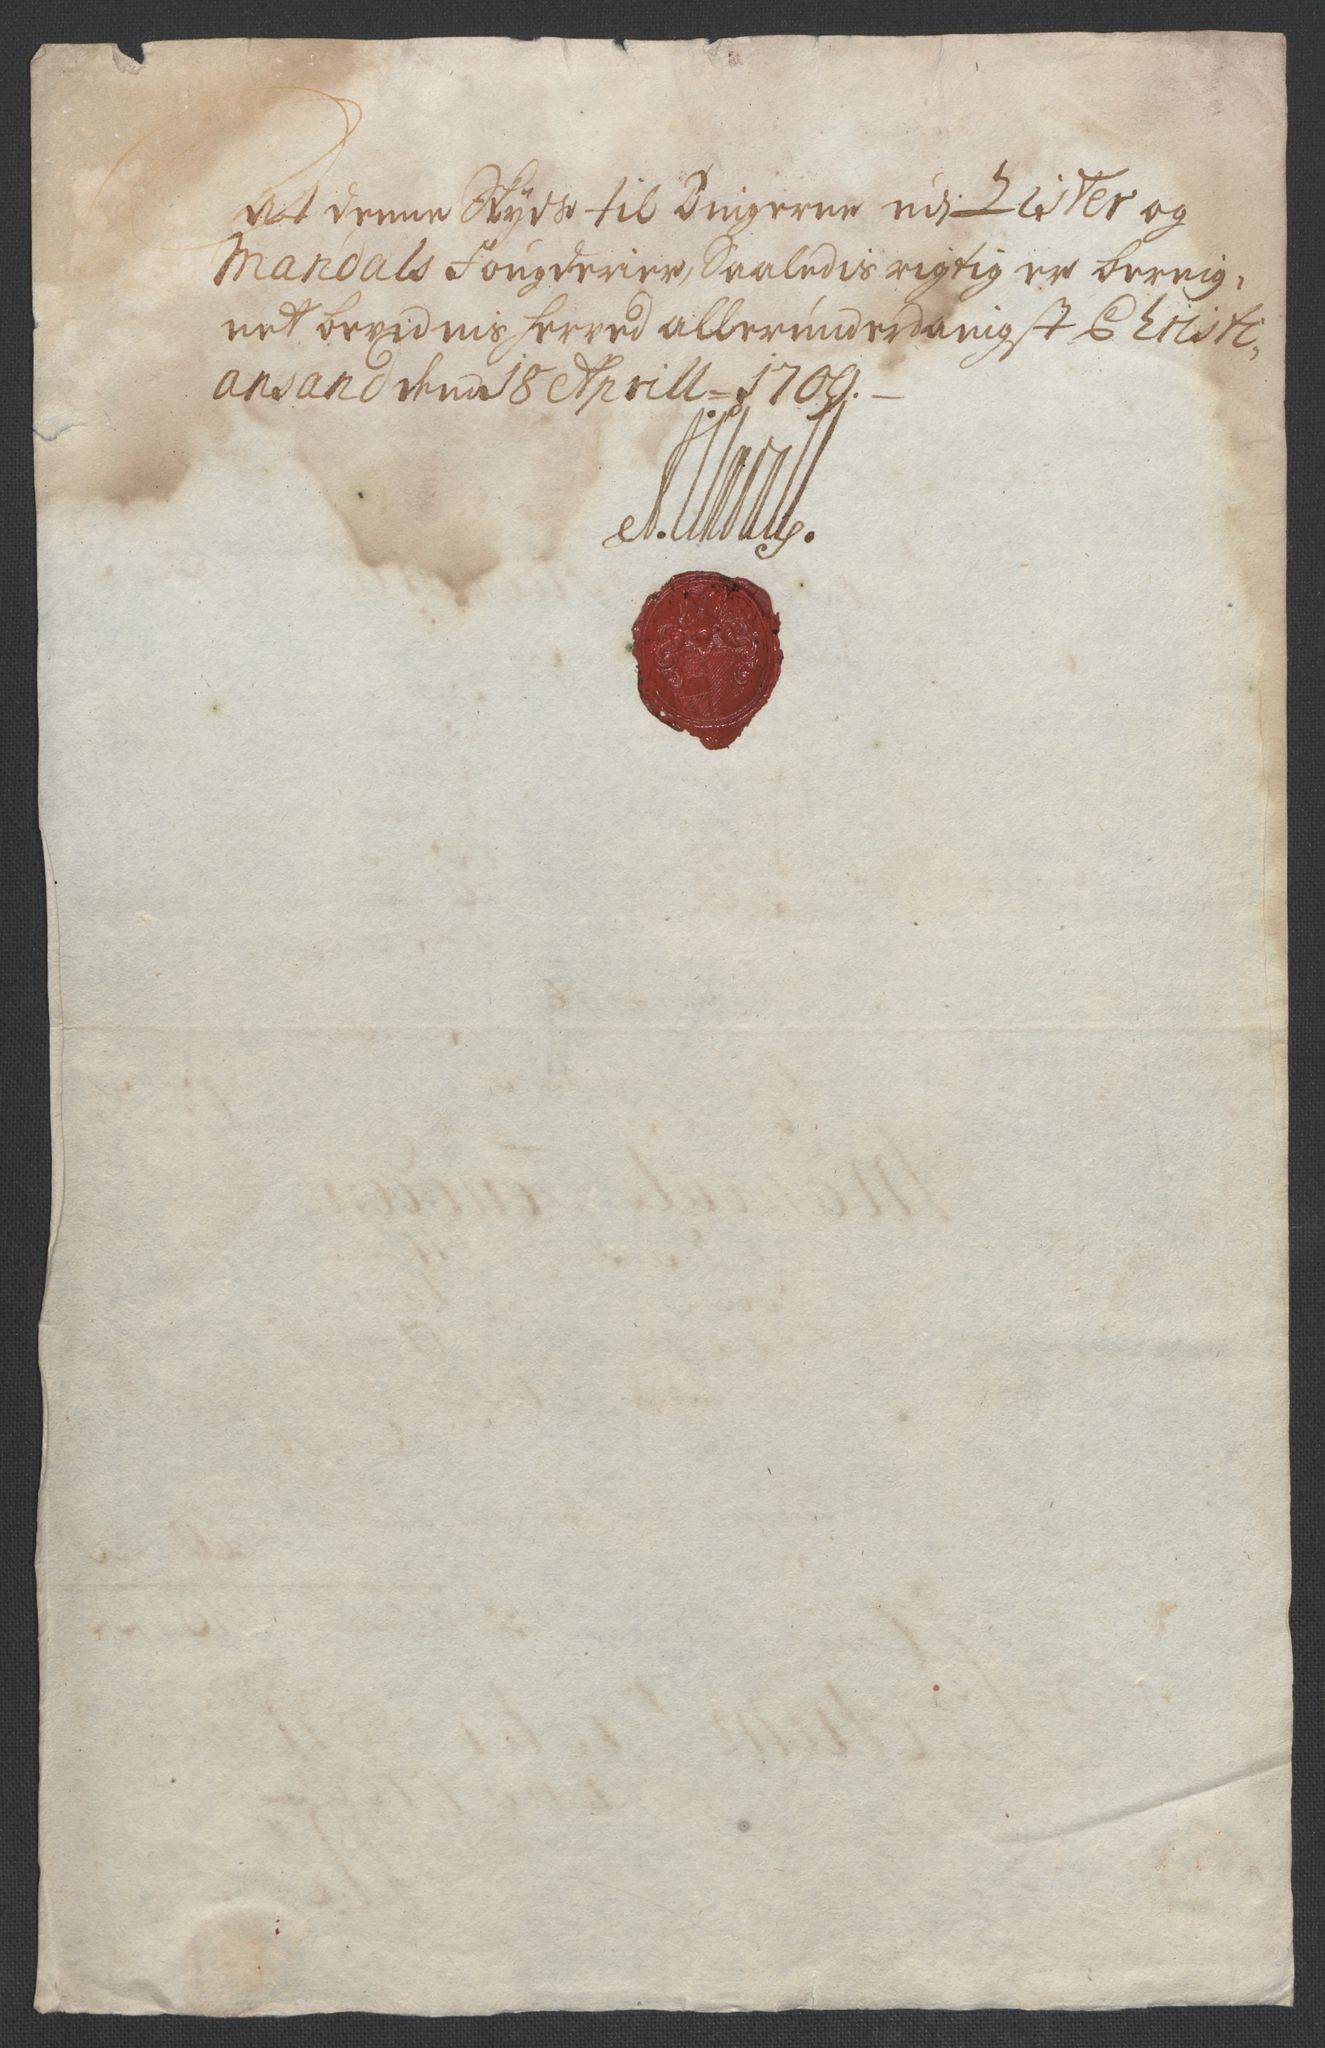 At denne Skyds til Tingerne udj Lister og
Mandals Fougderier, Saaledis rigtig er bereig,
net bevidnis herved allerunderdanigst Christi,
ansand den 18 Aprill = 1709. —